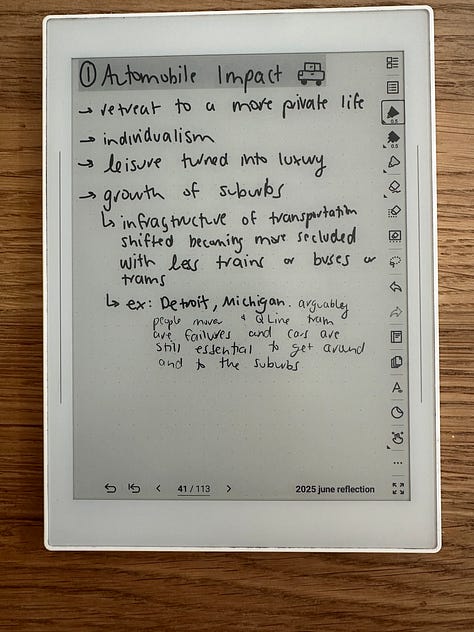 ① Automobile Impact
→ retreat to a more private life
→ individualism
→ leisure turned into luxury
→ growth of suburbs
↳ infrastructure of transportation
shifted becoming more secluded
with less trains or buses or
trams
↳ ex: Detroit, Michigan. arguably
people mover & QLine tram
are failures and cars are
still essential to get around
and to the suburbs
41 / 113
2025 june reflection
0.5
0.5
A